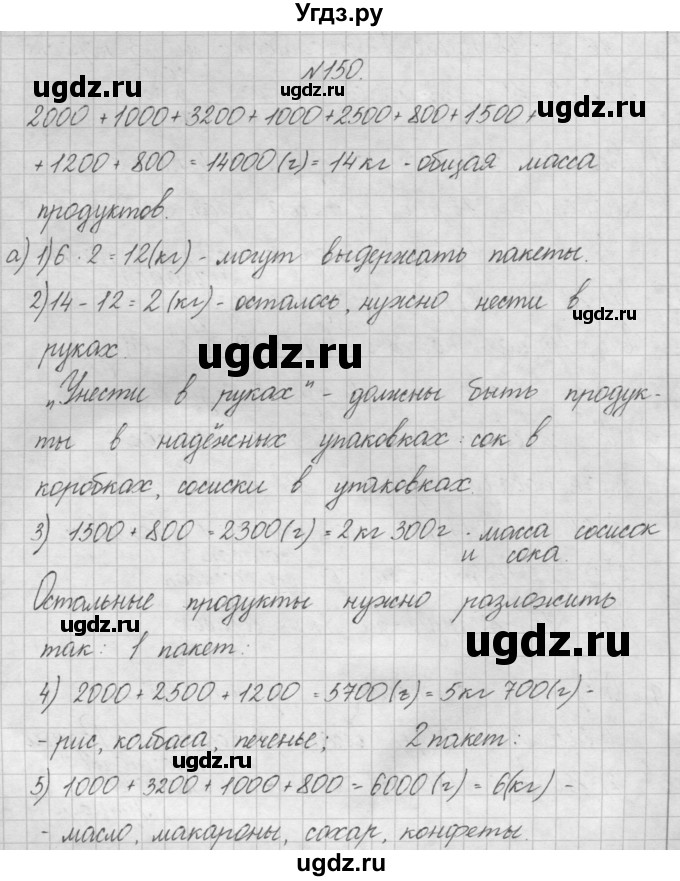 Угдз.ру
№150.
ugdz.ru ugdz.ru
2000 + 1000 + 3200 + 1000 + 2500 + 800 + 1500 +
ugdz.ru
+ 1200 + 800 = 14000 (г) = 14 кг - общая масса
продуктов.
а) 1) 6 · 2 = 12 (кг) - могут выдержать пакеты.
2) 14 - 12 = 2 (кг) - осталось, нужно нести в
ugdz.ru
руках.
ugdz.ru
„Унести в руках" - должны быть продук-
ты в надёжных упаковках: сок в
коробках, сосиски в упаковках.
3) 1500 + 800 = 2300 (г) = 2 кг 300 г - масса сосисок
и сока.
Остальные продукты нужно разложить
ugdz.ru ugdz.ru
так: 1 пакет:
4) 2000 + 2500 + 1200 = 5700 (г) = 5 кг 700 (г) -
- рис, колбаса, печенье; 2 пакет:
ugdz.ru ugdz.ru
5) 1000 + 3200 + 1000 + 800 = 6000 (г) = 6 (кг) -
- масло, макароны, сахар, конфеты.
ugdz.ru